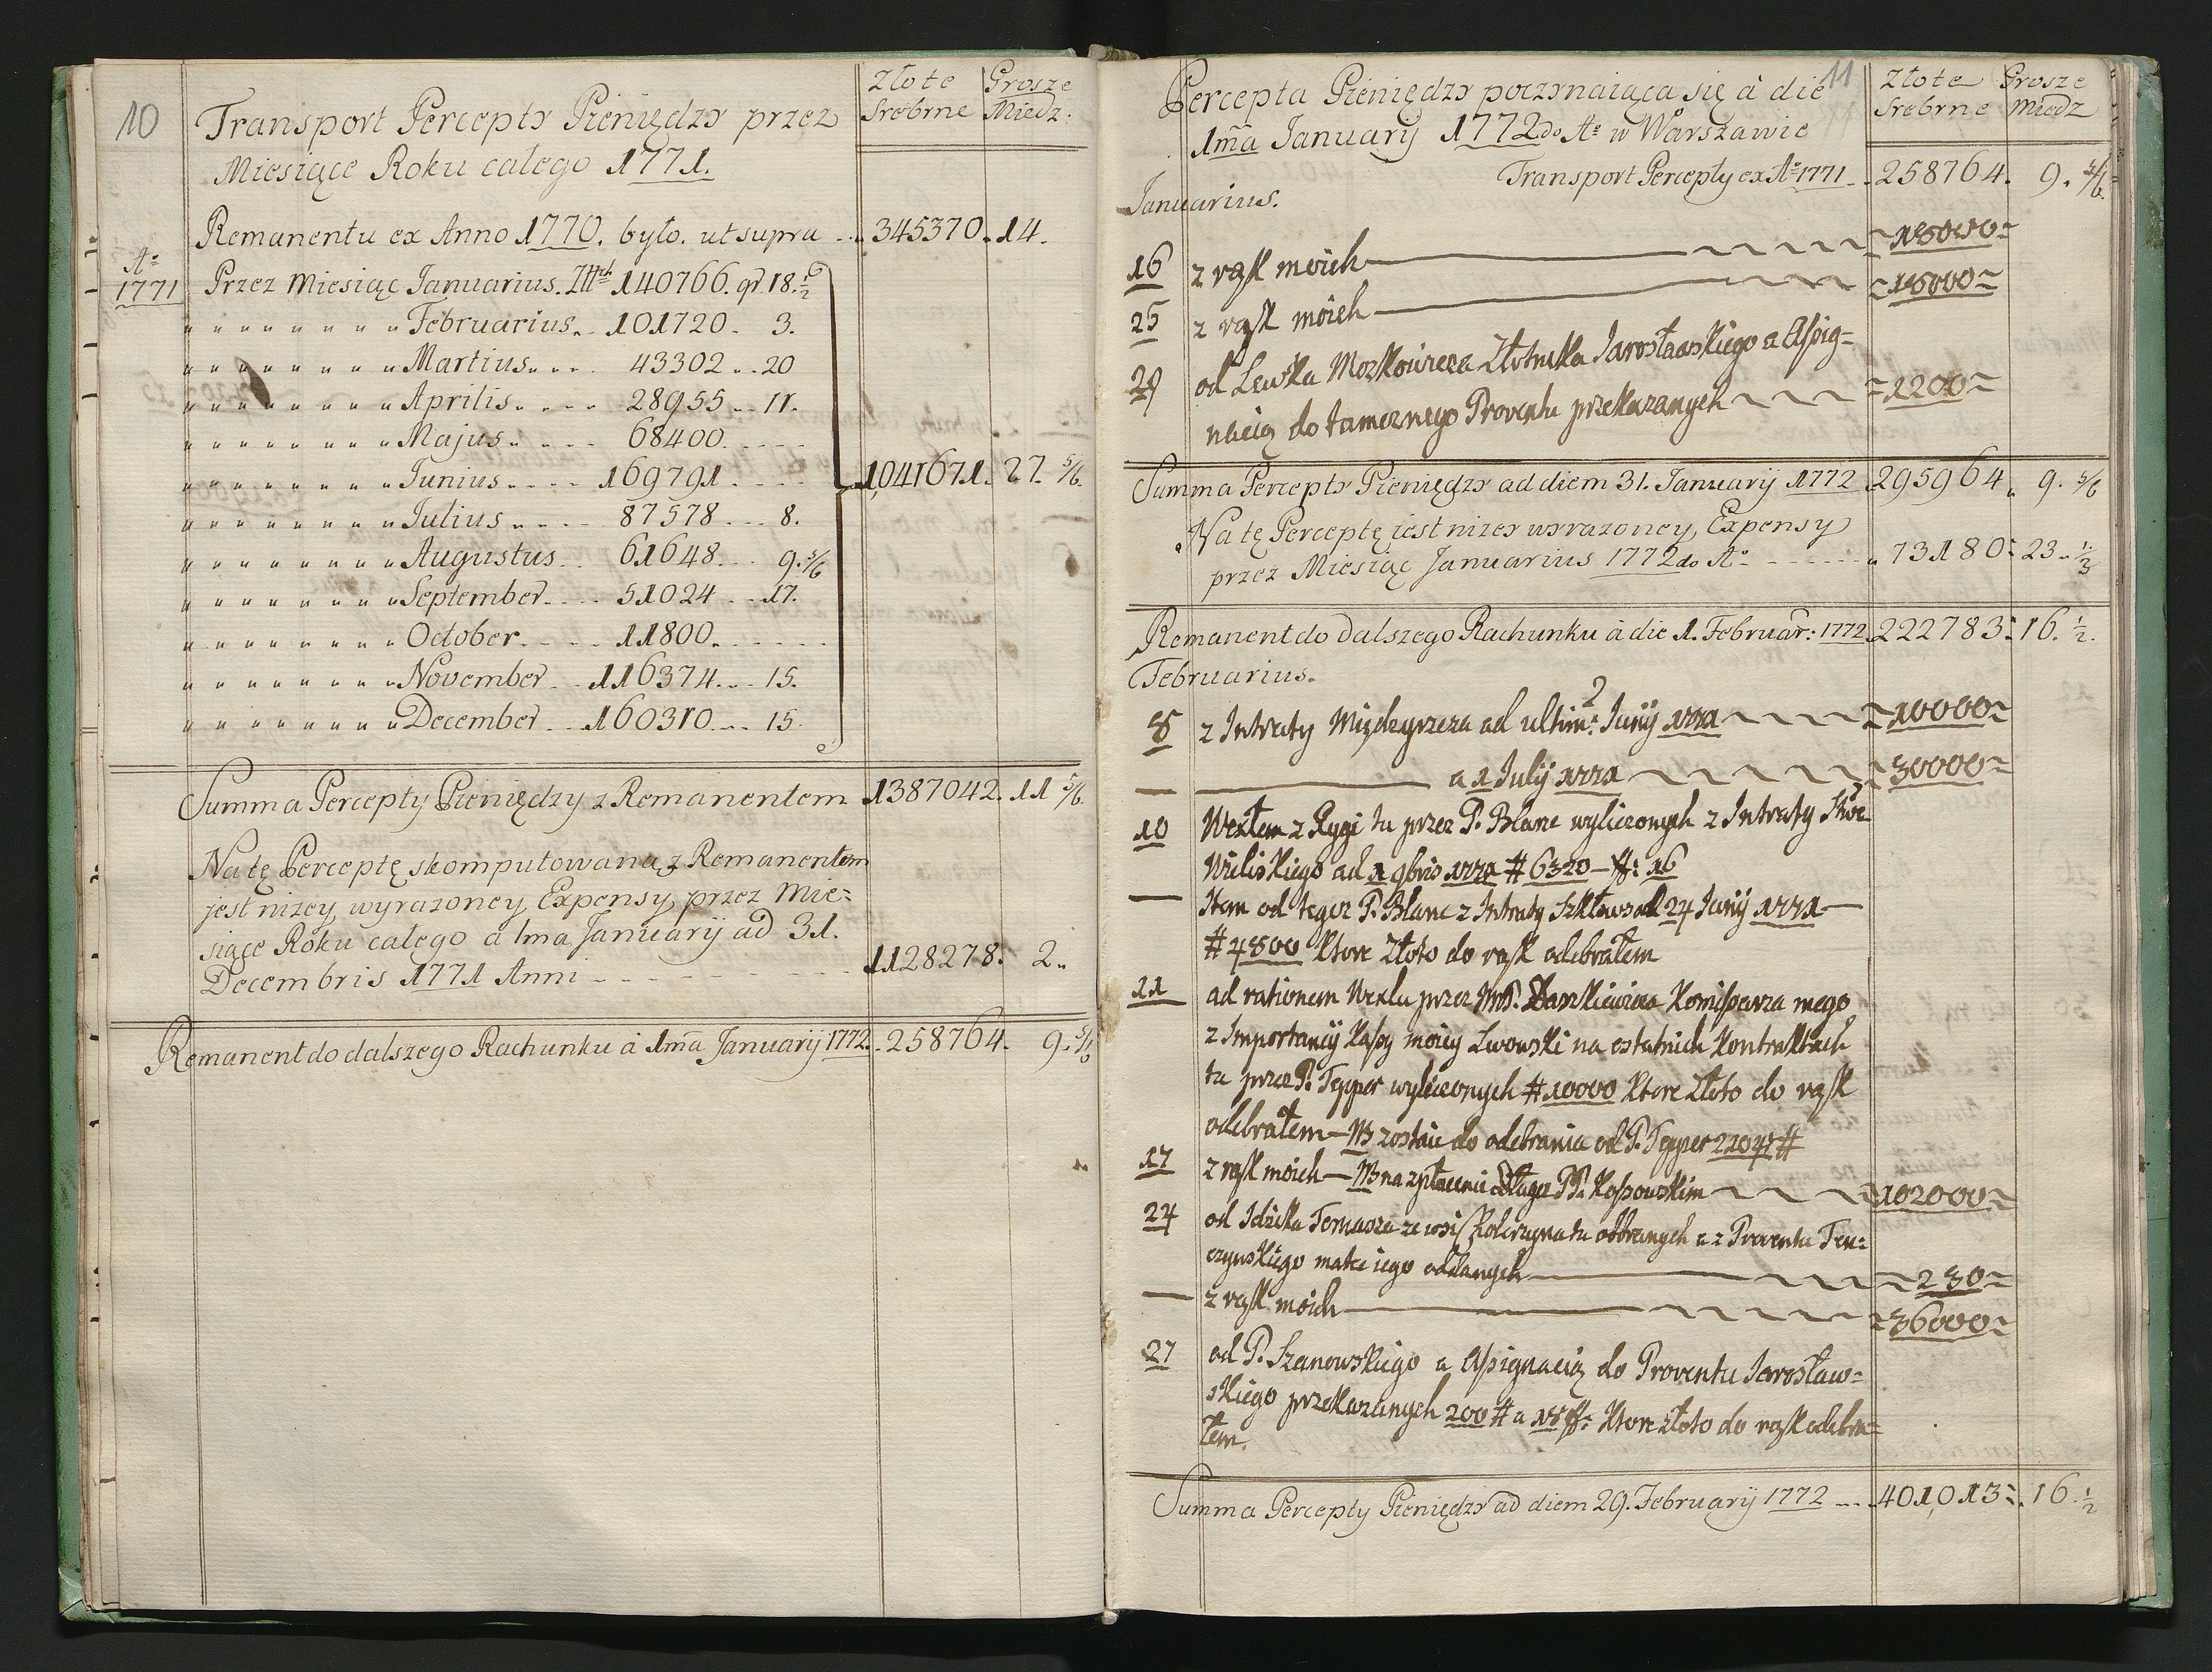 10
Złote Grosze
Srebrne Miedz:
Transport Percepty Pieniędzy przez
Miesiące Roku całego 1771.
Remanentu ex Anno 1770. było. ut supra .. 345370. 14.
Ao
1771
Przez Miesiąc Januarius. 140766. gr. 18. 1/2
" " " " " " " " Februarius. .. 101720. 3.
" " " " " " " " Martius. . . . 43302 .. 20
" " " " " " " " Aprilis. . . . . 28955 .. 11.
" " " " " " " " Majus. . . . . 68400. . . . .
" " " " " " " " Junius. . . . . 169791. . . . . 1,041671. 27. 5/6.
" " " " " " " " Julius. . . . . 87578 . . . 8.
" " " " " " " " Augustus. .. 61648. . . 9. 5/6
" " " " " " " " September. . . . 51024 . . . 17.
" " " " " " " " October. . . . . 11800. . . . . .
" " " " " " " " November. . . 116374. . . 15.
" " " " " " " " December. . . 160310. . . 15.
Summa Percepty Pieniędzy z Remanentem 1387042. 11 5/6.
Na tę Perceptę skomputowaną z Remanentem
jest niżey wyrażoney Expensy przez Mie=
siące Roku całego a 1ma Januarij ad 31.
Decembris 1771 Anni . . . 1128278. 2.
Remanent do dalszego Rachunku à 1mã Januarij 1772. . 258764. 9. 5/6
11
Złote Grosze
Srebrne Miedz
Percepta Pieniędzy poczynaiąca się à die
1mã Januarij 1772do Ao w Warszawie
Transport Percepty ex Ao 1771 . . 258764. 9. 5/6.
Januarius.
16 z rąk moich 18000
25 z rąk moich 18000
29 od Lewka Moszkowicza Złotnika Jarosławskiego a Assig=
nacią do tamecznego Proventu przekazanych 1200
Summa Percepty Pieniędzy ad diem 31. Januarij 1772 295964. 9. 5/6
Na tę Perceptę jest niżey wyrażoney Expensy
przez Miesiąc Januarius 1772do Ao . . . . . . 73180: 23. 1/3
Remanent do dalszego Rachunku à die 1. Februar: 1772. 222783: 16. 1/2.
Februarius.
8 z Intraty Międzyrzecza ad ultim: Junij 1771 10000
— a 1 Julij 1771 30000
10 Wexlem z Rygi tu przez P. Blanc wyliczonych z Intraty
ad 1 9bris 1771 # 6320 — ff: 16
— Item od tegoz P. Blanc z Intraty Szkłows ad 24 Junij 1771 —
# 4800 ktore Złoto do rąk odebrałem
11 ad rationem Wexlu przez Daszkiewicza Komissarza mego
z Importancij Kassy moiey Lwowski na ostatnich Kontraktach
tu przez P. Tepper wyliczonych # 10000 ktore Złoto do rąk
odebrałem — NB zostaie do odebrania od P. Tepper 22041 #
17 z rąk moich — NB na zpłacenie Długu PP. Kossowskim 102000
24 od Tomasza ze wsi tu odebranych a z Proventu Ten=
czynskiego matce iego oddanych 230
— z rąk moich 36000
27 od P. Szanowskiego a Assignacią do Proventu Jarosław=
skiego przekazanych 200 # a 18 ff: ktore złoto do rąk odebra=
łem.
Summa Percepty Pieniędzy ad diem 29. Februarij 1772 . . . 401,013: . 16. 1/2